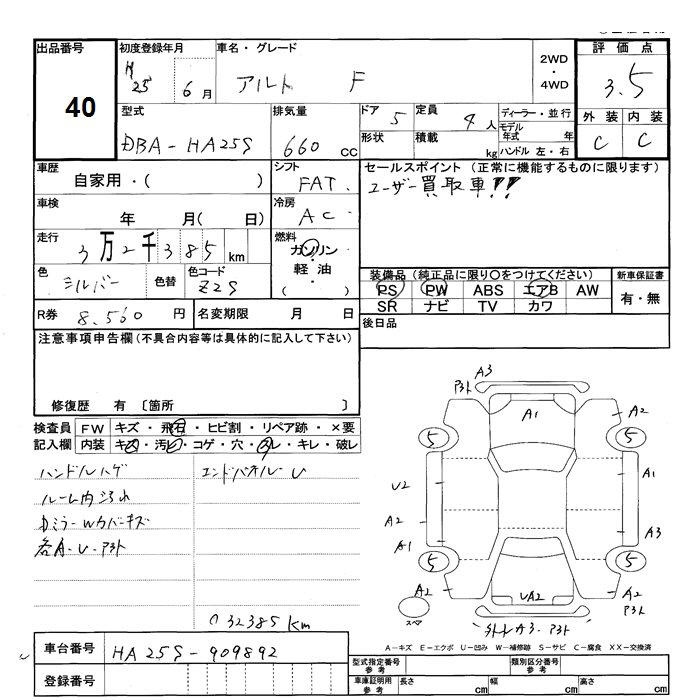 出品番号 初度登録年月 車名・グレード 2WD・4WD 評価点
40 H25 6月 アルト F 3.5
型式 排気量 ドア 5 定員 4人 ディーラー・並行 外装 内装
DBA-HA25S 660 CC 形状 積載 kg モデル年式 年 C C
ハンドル 左・右
車歴 シフト セールスポイント (正常に機能するものに限ります)
自家用・( ) FAT. ユーザー買取車!!
車検 冷房
年 月( 日) AC
走行 燃料
3万2千385km ガソリン・軽油・( )
色 シルバー 色替 色コード Z2S
装備品 (純正品に限り○をつけてください) 新車保証書
PS PW ABS エアB AW 有・無
SR ナビ TV カワ
R券 8,560円 名変期限 月 日
後日品
注意事項申告欄 (不具合内容等は具体的に記入して下さい)
修復歴 有 〔箇所 〕
検査員 FW キズ・飛石・ヒビ割・リペア跡・×要
記入欄 内装 キズ・汚レ・コゲ・穴・スレ・キレ・破レ
ハンドルハゲ エンドパネルU
ルーム内汚れ
Dミラーウカバーキズ
各A・U・アクト
032385km
A3
アクト
A1
A2
5
5
U2
A1
A2
A3
A1
5
5
A2
UA2
A2
アクト
スペア
A3・アクト
A-キズ E-エクボ U-凹み W-補修跡 S-サビ C-腐食 XX-交換済
車台番号 HA25S-909892
登録番号
型式指定番号 参考 類別区分番号 参考
車庫証明用 参考 長さ cm 幅 cm 高さ cm